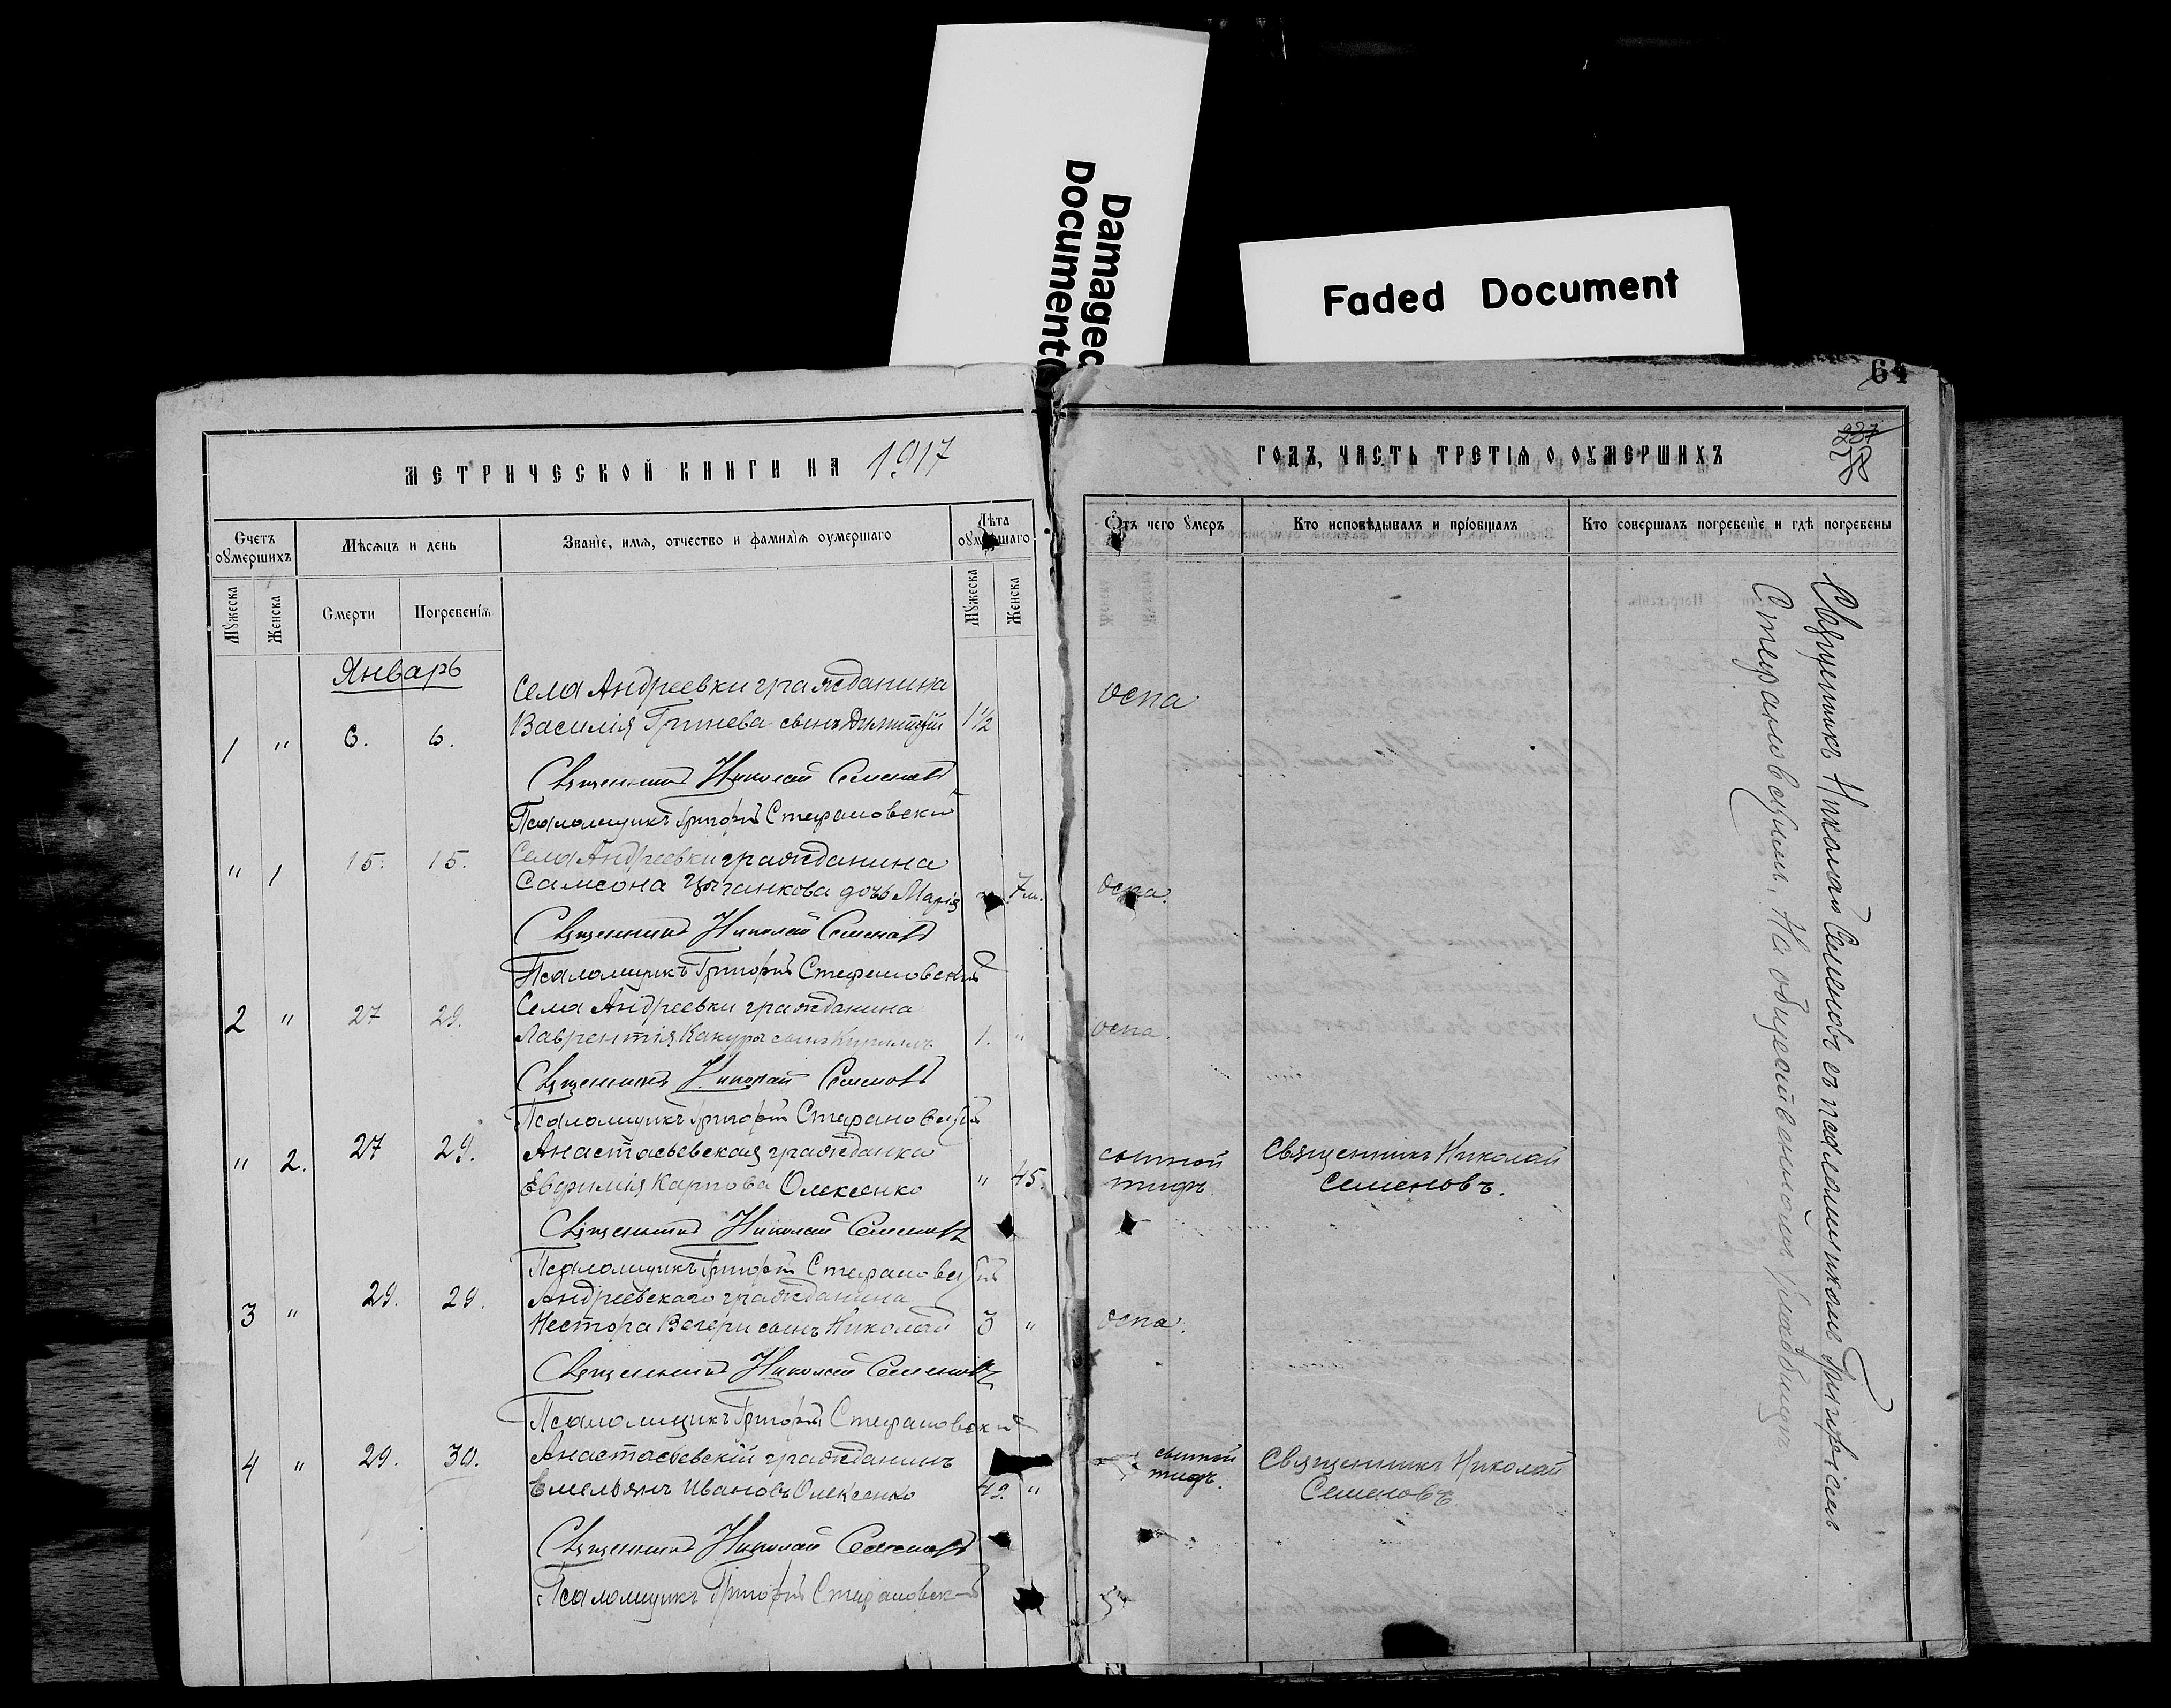 Damaged
Document
Faded Document
64
237
МЕТРИЧЕСКОЙ КНИГИ НА 1917
ГОДЪ, ЧАСТЬ ТРЕТІЯ О ОУМЕРШИХЪ
Счетъ оумершихъ
Мѣсяцъ и день
Званіе, имя, отчество и фамилія оумершаго
Лѣта оумершаго
Отъ чего умеръ
Кто исповѣдывалъ и пріобщалъ
Кто совершалъ погребеніе и гдѣ погребены
Мужеска
Женска
Смерти
Погребенія
Мужеска
Женска
Январь
Села Андреевки гражданина
оспа
1 " 6. 6. Василія Гринева сынъ Димитрій 1½
Священникъ Николай Семеновъ
Псаломщикъ Григорій Стефановскій
" 1 15. 15. Села Андреевки гражданина
Самсона Цыганкова дочь Марія 7 м. оспа.
Священникъ Николай Семеновъ
Псаломщикъ Григорій Стефановскій
2 " 27 29. Села Андреевки гражданина
Лаврентія Какуры сынъ 1. " оспа.
Священникъ Николай Семеновъ
Псаломщикъ Григорій Стефановскій
" 2. 27 29. Анастасьевская гражданка
сыпной Священникъ Николай
Евфимія Карпова Олексенко " 45.
тифъ Семеновъ.
Священникъ Николай Семеновъ
Псаломщикъ Григорій Стефановскій
3 " 29. 29. Андреевскаго гражданина
Нестора Вечери сынъ Николай 3 " оспа.
Священникъ Николай Семеновъ
Псаломщикъ Григорій Стефановскій
4 " 29. 30. Анастасьевскій гражданинъ
сыпной Священникъ Николай
Емельянъ Ивановъ Олексенко 49. "
тифъ. Семеновъ
Священникъ Николай Семеновъ
Псаломщикъ Григорій Стефановскій
Священникъ Николай Семеновъ съ псаломщикомъ Григоріемъ
Стефановскимъ. На общественномъ кладбищѣ